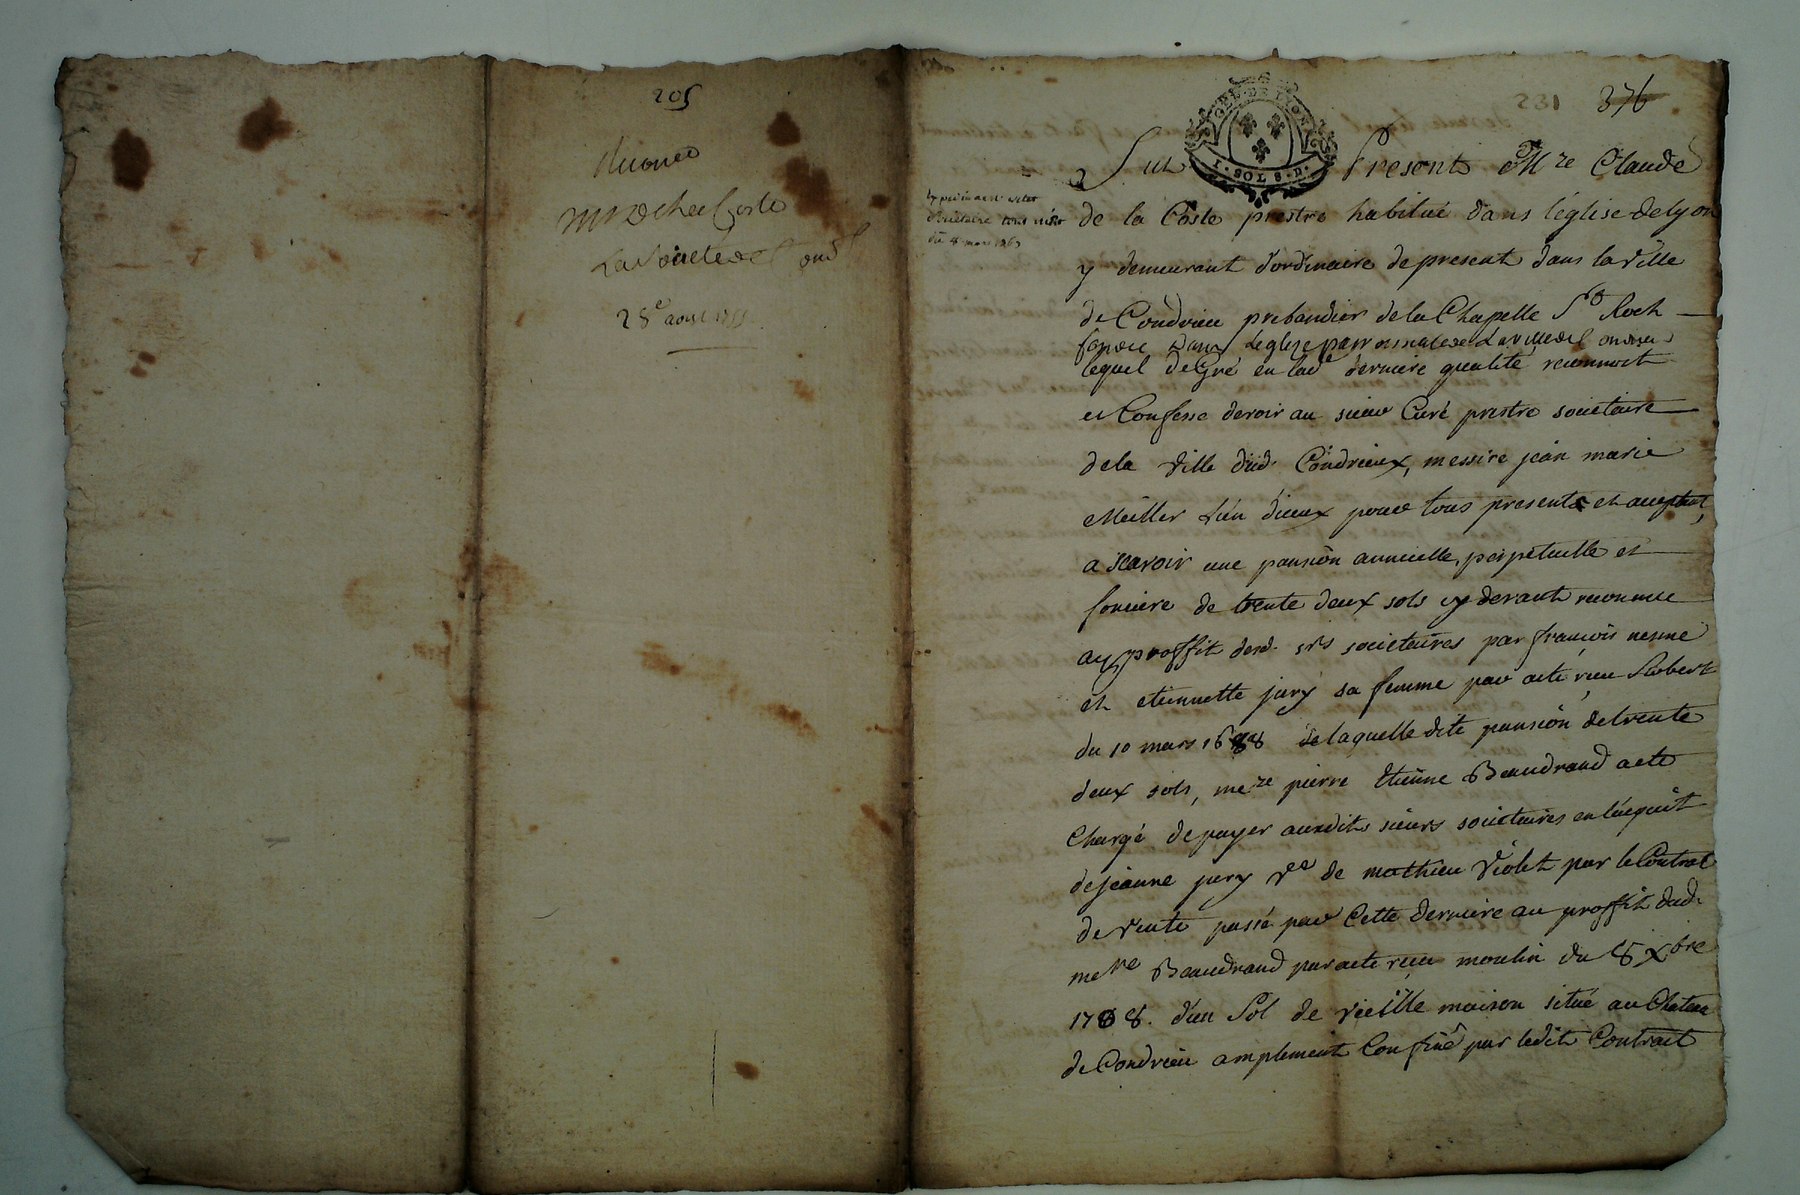 205
Mre de la Coste
La Société de Cond
28e aoust
376
GEN. DE LYON
1. SOL 8. D.
Fut Present Mre Claude
de la Coste prestre habitué dans l'église de Lyon
y demeurant d'ordinaire de present dans la ville
de Condrieu prebandier de la Chapelle St Roch
fondée dans L'eglize parroissiale de La ville de Condrieu
lequel de Gré en lad dernière qualité reconnoit
et Confesse devoir au sieur Curé prestre societaire
de la ville dud. Condrieux, messire jean marie
Meiller L'un d'ieux pour tous presents et acceptant,
a scavoir une pansion annuelle, perpetuelle et
fonciere de trente deux sols cy devant reconnue
au proffit desd. srs societaires par françois nesme
et etiennette jury sa femme par acte reçu Robert
du 10 mars 1688 de laquelle dite pansion de trente
deux sols, mere pierre Etienne Beaudrand a ete
Chargé de payer auxdits sieurs societaires en l'acquit
de jeanne jury Ve de mathieu Violet par le Contrat
de vente passé par Cette derniere au proffit dud.
mere Beaudrand par acte reçu moulin du 8 Xbre
1708. d'un Sol de vieille maison situé au Chateau
de Condrieu amplement Confiné par ledit Contrait